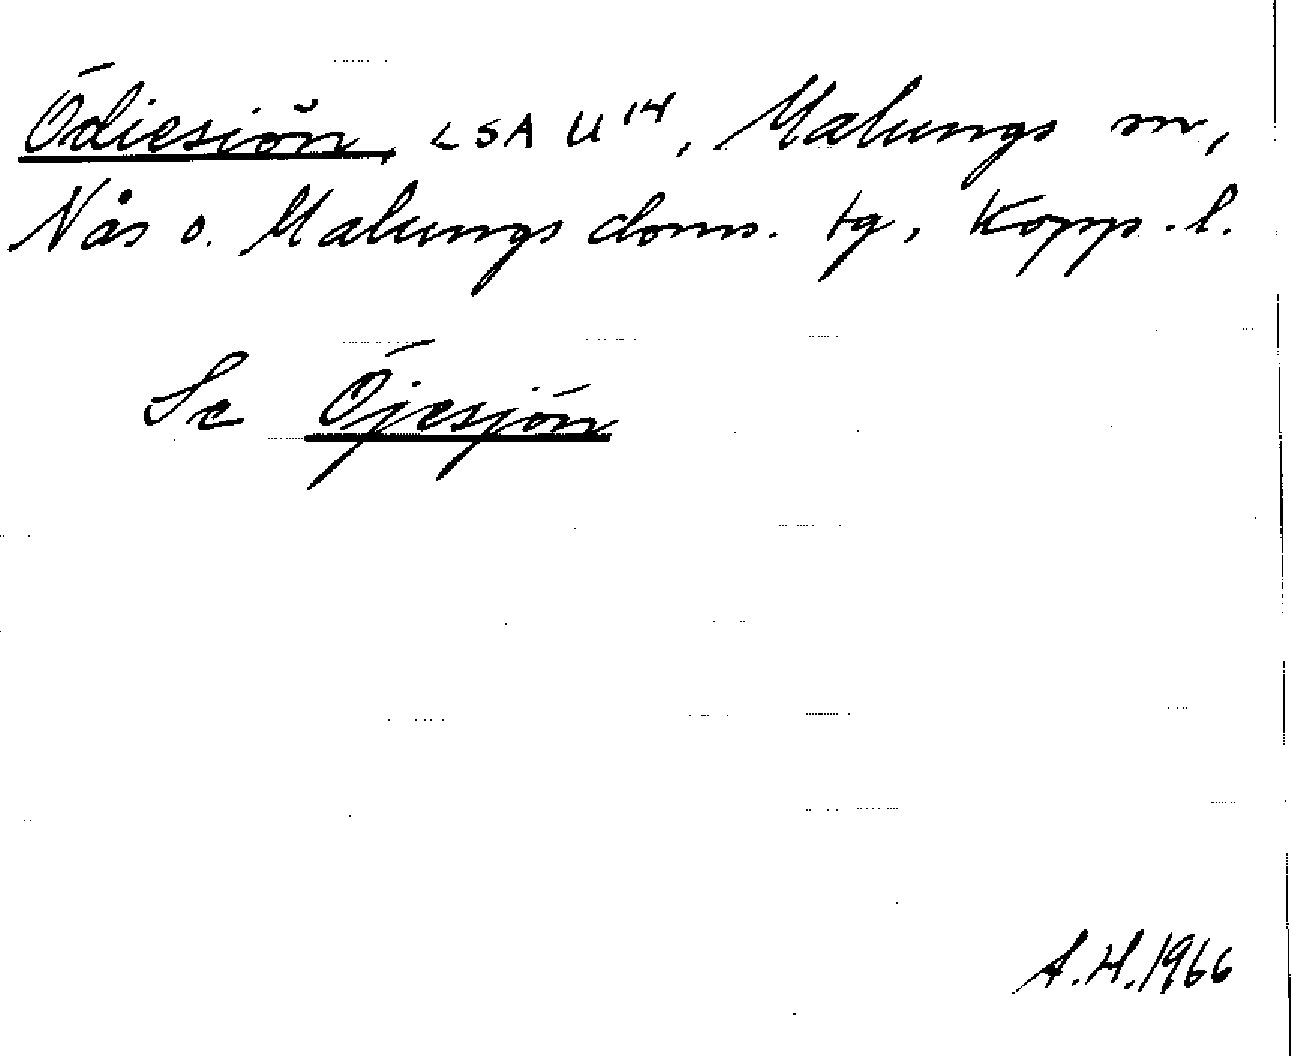 Ödiesiön, LSA U14, Malungs sn,
Nås o. Malungs doms. tg, Kopp. l.
Se Öjesjön
A.H. 1966